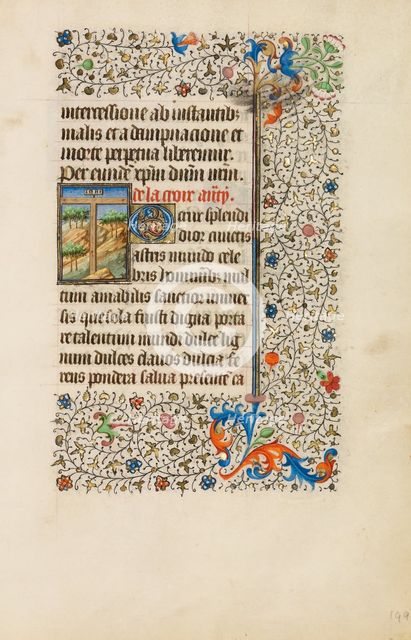 intercessione ab instantib;
malis et a dampnacione et
morte perpetua liberemur.
Per eunde xpm dnm nrm.
de la croix anty.
INRI
O crux splendi
dior cunctis
astris mundo cele
bris hominib; mul
tum amabilis sanctior univer
sis que sola fuisti digna porta
re talentum mundi dulce lig
num dulces clavos dulcia fe
rens pondera salva presente ca
199